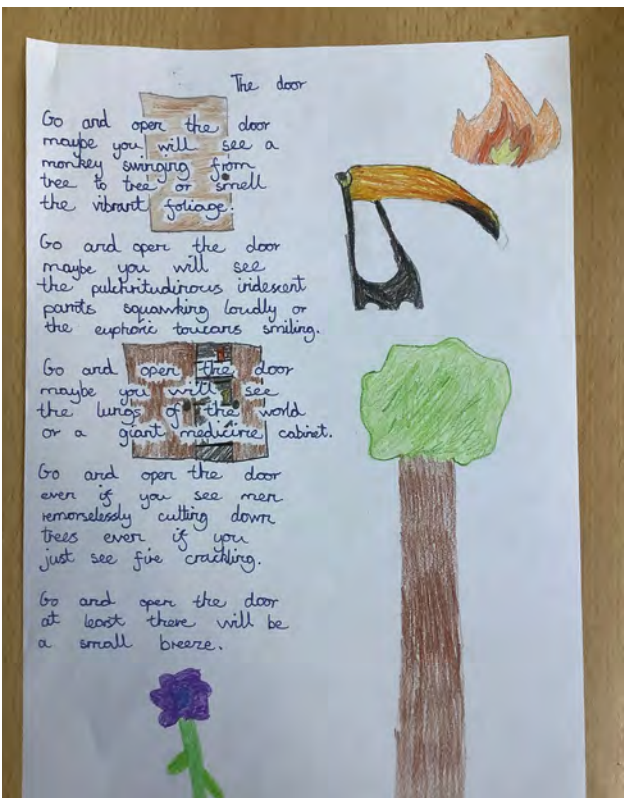 The door
Go and open the door
maybe you will see a
monkey swinging from
tree to tree or smell
the vibrant foliage.
Go and open the door
maybe you will see
the pulchritudinous iridescent
parrots squawking loudly or
the euphoric toucans smiling.
Go and open the door
maybe you will see
the lungs of the world
or a giant medicine cabinet.
Go and open the door
even if you see men
remorselessly cutting down
trees even if you
just see fire crackling.
Go and open the door
at least there will be
a small breeze.